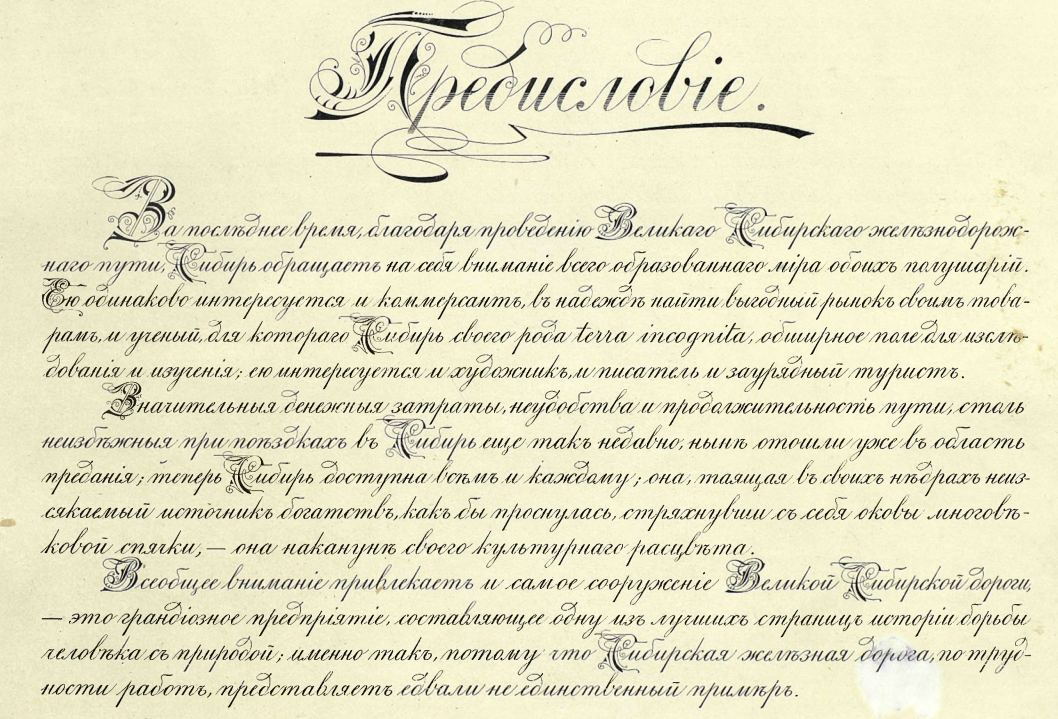 Предисловіе.
За послѣднее время, благодаря проведенію Великаго Сибирскаго желѣзнодорож-
наго пути, Сибирь обращаетъ на себя вниманіе всего образованнаго міра обоихъ полушарій.
Ею одинаково интересуется и коммерсантъ, въ надеждѣ найти выгодный рынокъ своимъ това-
рамъ, и ученый, для котораго Сибирь своего рода terra incognita, обширное поле для изслѣ-
дованія и изученія; ею интересуется и художникъ, и писатель и заурядный туристъ.
Значительныя денежныя затраты, неудобства и продолжительность пути, столь
неизбѣжныя при поѣздкахъ въ Сибирь еще такъ недавно, нынѣ отошли уже въ область
преданія; теперь Сибирь доступна всѣмъ и каждому; она, таящая въ своихъ нѣдрахъ неиз-
сякаемый источникъ богатствъ, какъ бы проснулась, стряхнувши съ себя оковы многовѣ-
ковой спячки, — она наканунѣ своего культурнаго расцвѣта.
Всеобщее вниманіе привлекаетъ и самое сооруженіе Великой Сибирской дороги,
— это грандіозное предпріятіе, составляющее одну изъ лучшихъ страницъ исторіи борьбы
человѣка съ природой; именно такъ, потому что Сибирская желѣзная дорога, по труд-
ности работъ, представляетъ едвали не единственный примѣръ.